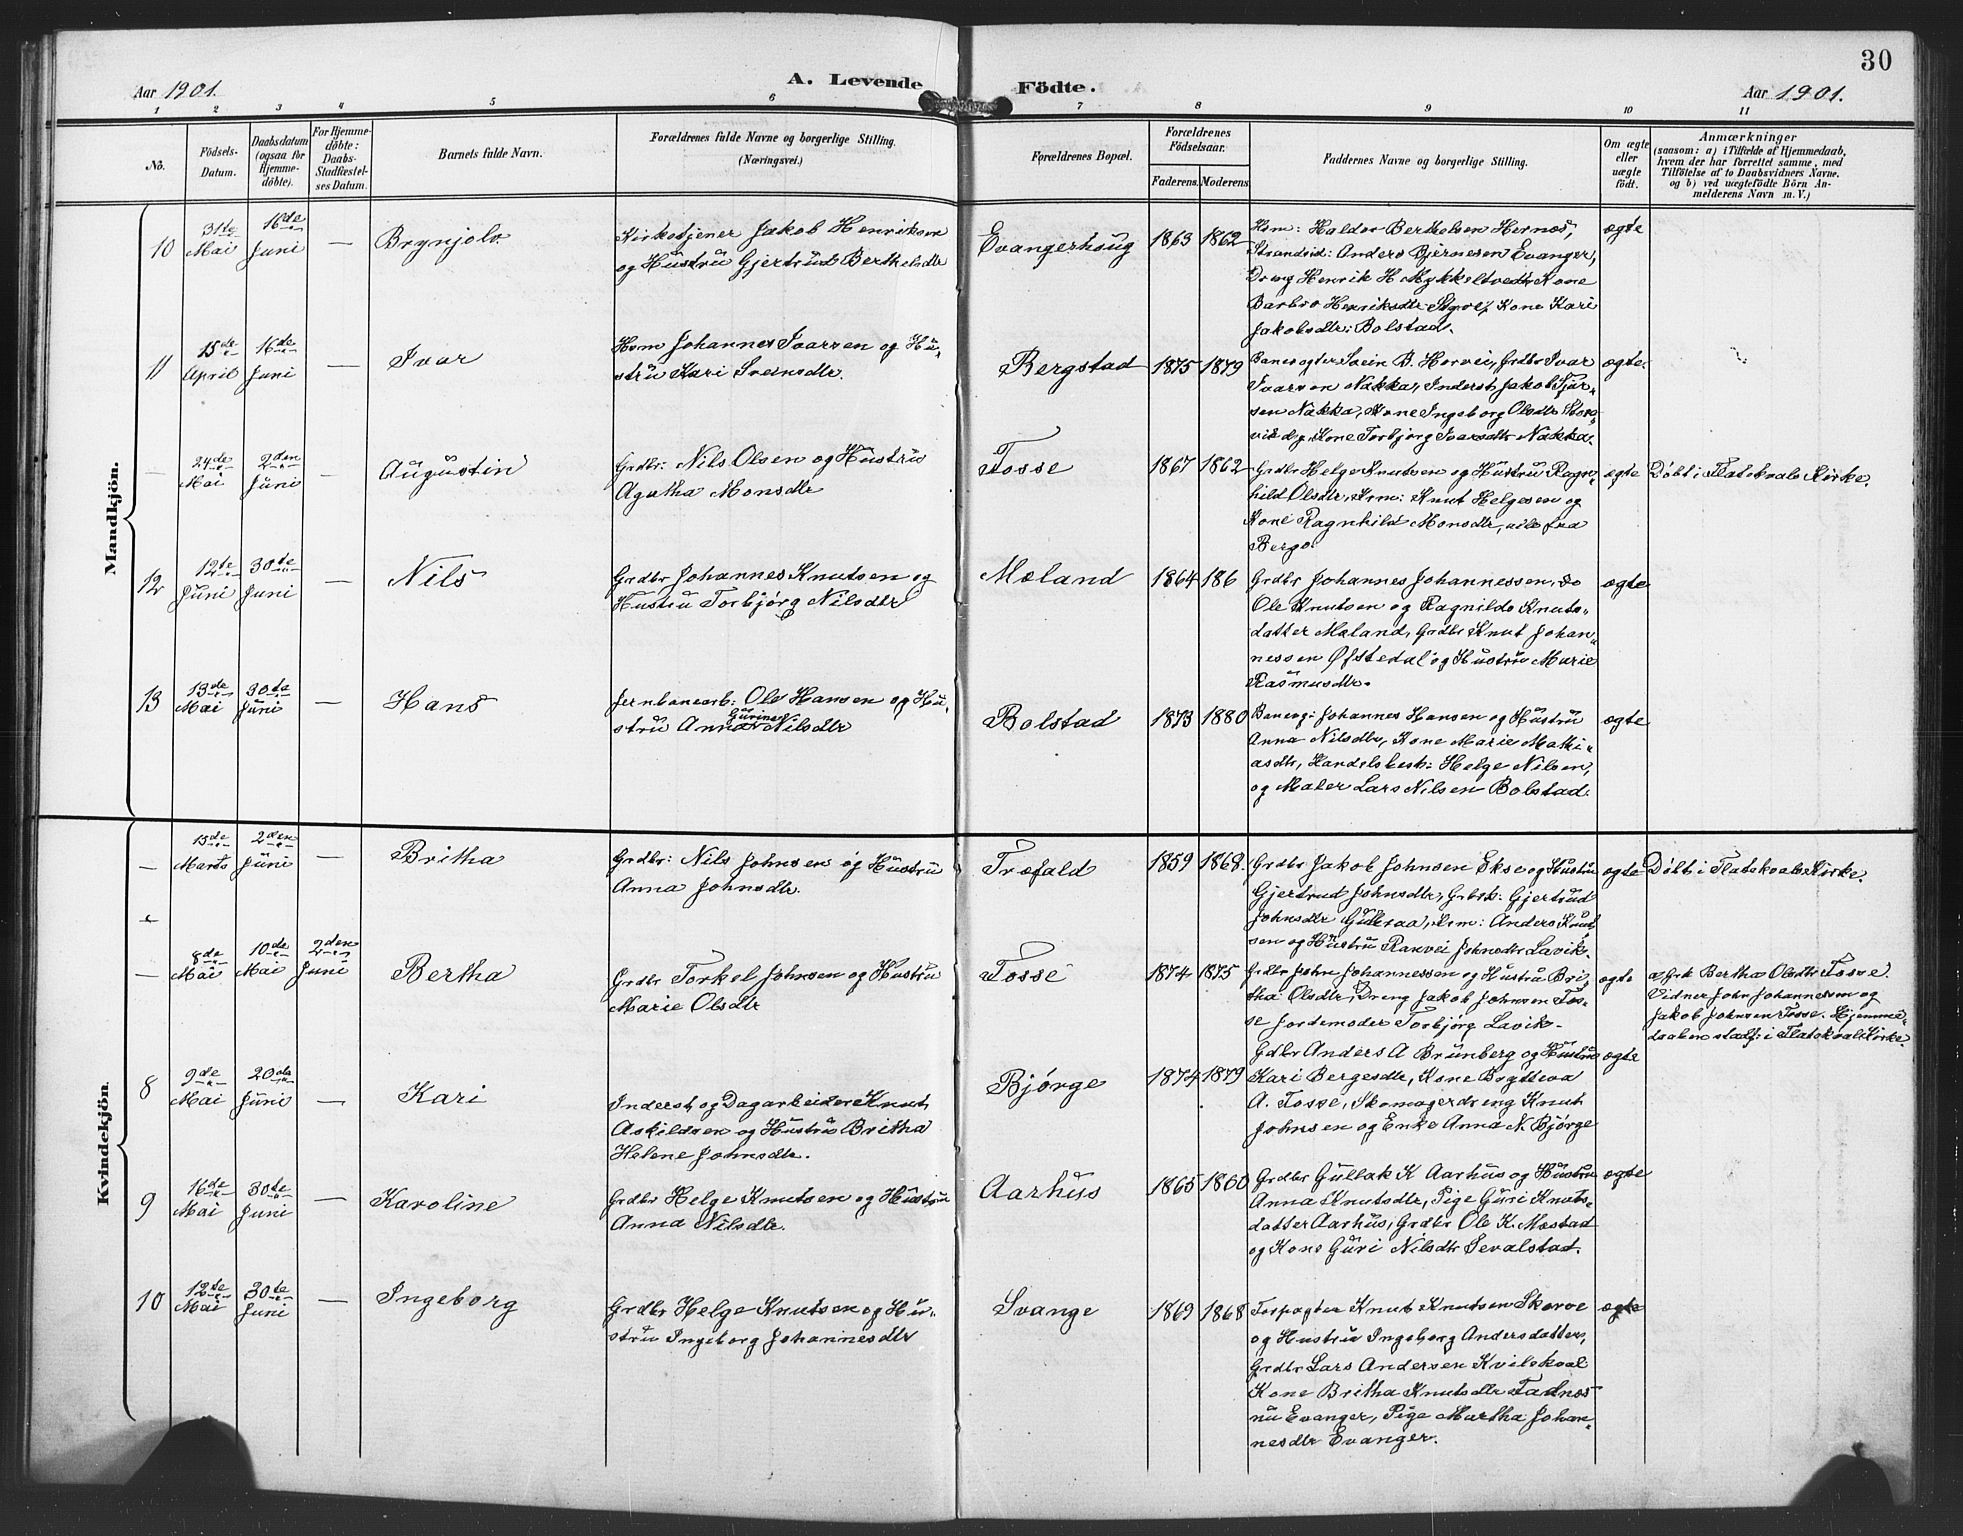 30
Aar 1901.
A. Levende Födte.
Aar 1901.
1 2 3 4 5 6 7 8 9 10 11
No.
Födsels-
Datum.
Daabsdatum
(ogsaa for
Hjemme-
döbte).
For Hjemme-
döbte:
Daabs-
Stadfæstel-
ses Datum.
Barnets fulde Navn.
Forældrenes fulde Navne og borgerlige Stilling.
(Næringsvei.)
Forældrenes Bopæl.
Forældrenes
Födselsaar.
Faderens. Moderens.
Faddernes Navne og borgerlige Stilling.
Om ægte
eller
uægte
födt.
Anmærkninger
(saasom: a) i Tilfælde af Hjemmedaab,
hvem der har forrettet samme, med
Tilföielse af to Daabsvidners Navne.
og b) ved uægtefödte Börn An-
melderens Navn m. V.)
Mandkjön.
10
31te
Mai
16de
Juni
—
Brynjolv
Kirketjener Jakob Henriksen
og Hustru Gjertrud Berthelsdtr
Evangerhoug
1863 1862
Hsm: Haldor Berthelsen Hernes,
Strandsid: Anders Bjørnesen Evanger,
Dreng Henrik H Mykkeltvedt, Kone
Barbro Henriksdtr Styve, Kone Kari
Jakobsdtr: Bolstad.
ægte
11
15de
April
16de
Juni
—
Ivar
Hsm Johannes Ivarsen og Hu-
stru Kari Sveinsdtr.
Bergstad
1875 1879
Banevogter Svein B. Horvei, Grdbr Ivar
Ivarsen Nakka, Inderst Jakob
sen Nakka, Kone Ingeborg Olsdtr
Kone Torbjørg Ivarsdtr Nakka.
ægte.
—
24de
Mai
2den
Juni
—
Augustin
Grdbr: Nils Olsen og Hustru
Agatha Monsdtr
Fosse
1867 1862
Grdbr Helge Knutsen og Hustru Ragn-
hild Olsdtr, Hsm: Knut Helgesen og
Kone Ragnhild Monsdtr, alle fra
Bergo.
ægte
Døbt i Flatekvals Kirke.
12
12te
Juni
30te
Juni
—
Nils
Grdbr Johannes Knutsen og
Hustru Torbjørg Nilsdtr
Mæland
1864 186
Grdbr Johannes Johannessen, do
Ole Knutsen og Ragnilds Knuts-
datter Mæland, Grdbr Knut Johan-
nessen Øfstedal og Hustru Marie
Rasmusdtr.
ægte
13
13de
Mai
30te
Juni
—
Hans
Jernbanearb: Ole Hansen og Hu-
stru Anna Gurine Nilsdtr
Bolstad
1873 1880
Banevg: Johannes Hansen og Hustru
Anna Nilsdtr, Kone Marie Mathi-
asdtr, Handelsbest: Helge Nilsen,
og Maler Lars Nilsen Bolstad.
ægte
Kvindekjön.
—
15de
Marts
2den
Juni
—
Britha
Grdbr: Nils Johnsen og Hustru
Anna Johnsdtr.
Træfald
1859 1868.
Grdbr Jakob Johnsen Ekse og Hustru
Gjertrud Johnsdtr, Gjertrud
Johnsdtr Gullraa, Hsm: Anders Knut
sen og Hustru Ranvei Johnsdtr Lavik.
ægte
Døbt i Flatekvals Kirke.
—
8de
Mai
10de
Mai
2den
Juni
Bertha
Grdbr Torkel Johnsen og Hustru
Marie Olsdtr
Fosse
1874 1875
Grdbr John Johannessen og Hustru Bri-
tha Olsdtr, Dreng Jakob Johnsen Fos-
se Jordemoder Torbjørg Lavik.
ægte
a, Grk Bertha Olsdtr Fosse.
Vidner John Johannessen og
Jakob Johnsen Fosse. Hjemme-
daaben stadf: i Flatekvals Kirke.
8
9de
Mai
20de
Juni
—
Kari
Inderst og Dagarbeider Knut
Askildsen og Hustru Britha
Helene Johnsdtr.
Bjørge
1874 1879
Gdbr Anders A Brunberg og Hustru
Kari Bergesdtr, Kone Brytteva
A. Fosse, Skomagerdreng Knut
Johnsen og Enke Anna N. Bjørge
ægte
9
16de
Mai
30te
Juni
—
Karoline
Grdbr Helge Knutsen og Hustru
Anna Nilsdtr.
Aarhus
1865 1860
Grdbr Gullak K Aarhus og Hustru
Anna Knutsdtr, Pige Guri Knuts-
datter Aarhus, Grdbr Ole K. Mæstad
og Kone Guri Nilsdtr Sevalstad.
ægte
10
12te
Mai
30te
Juni
—
Ingeborg
Grdbr Helge Knutsen og Hu-
stru Ingeborg Johannesdtr
Svange
1869 1868
Torpagter Knut Knutsen Skorve
og Hustru Ingeborg Andersdatter,
Grdbr Lars Andersen Kvilekval
Kone Britha Knutsdtr Fadnes
nu Evanger, Pige Martha Johan-
nesdtr Evanger.
ægte